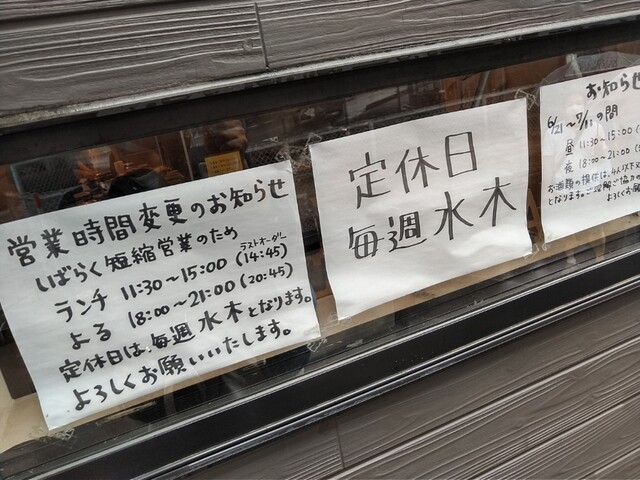 営業時間変更のお知らせ
しばらく短縮営業のため
ラストオーダー
ランチ 11:30〜15:00 (14:45)
よる 18:00〜21:00 (20:45)
定休日は、毎週水木となります。
よろしくお願いいたします。
定休日
毎週水木
お知らせ
6/21〜7/11の間
昼 11:30〜15:00
夜 18:00〜21:00
お酒類の提供は、4人以下
となります。ご理解ご協力の
よろしくお願